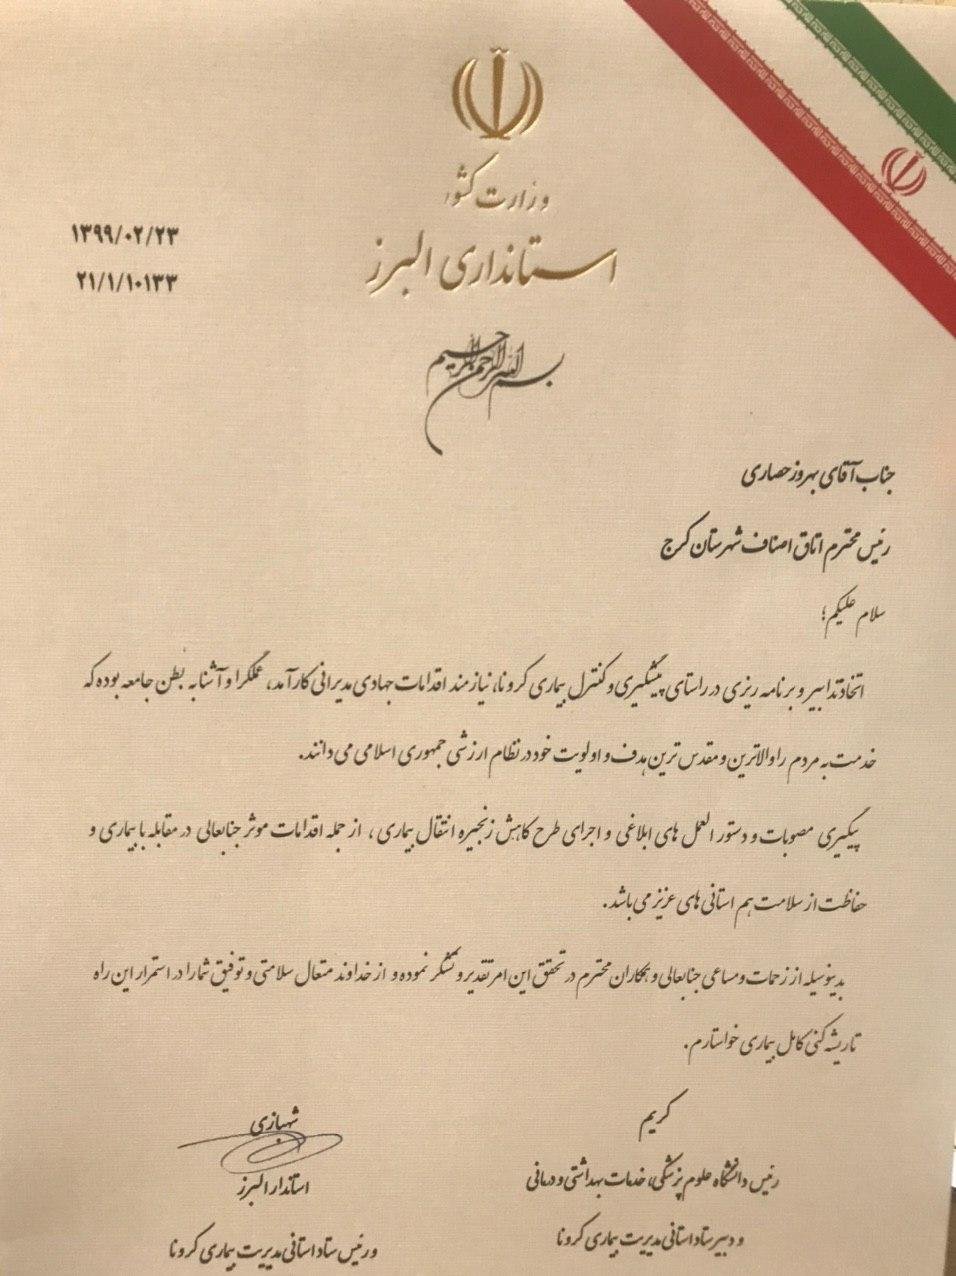 وزارت کشور
استانداری البرز
۱۳۹۹/۰۲/۲۳
۲۱/۱/۱۰۱۳۳
بسم الله الرحمن الرحیم
جناب آقای بهروز حصاری
رئیس محترم اتاق اصناف شهرستان کرج
سلام علیکم؛
اتخاذ تدابیر و برنامه ریزی در راستای پیشگیری و کنترل بیماری کرونا، نیازمند اقدامات جهادی مدیرانی کارآمد، عملگرا و آشنا به بطن جامعه بوده که
خدمت به مردم را والاترین و مقدس ترین هدف و اولویت خود در نظام ارزشی جمهوری اسلامی می دانند.
پیگیری مصوبات و دستور العمل های ابلاغی و اجرای طرح کاهش زنجیره انتقال بیماری ، از جمله اقدامات موثر جنابعالی در مقابله با بیماری و
حفاظت از سلامت هم استانی های عزیز می باشد.
بدینوسیله از زحمات و مساعی جنابعالی و همکاران محترم در تحقق این امر تقدیر و تشکر نموده و از خداوند متعال سلامتی و توفیق شما را در استمرار این راه
تا ریشه کنی کامل بیماری خواستارم.
کریم
رئیس دانشگاه علوم پزشکی، خدمات بهداشتی و درمانی
و دبیر ستاد استانی مدیریت بیماری کرونا
شهبازی
استاندار البرز
و رئیس ستاد استانی مدیریت بیماری کرونا